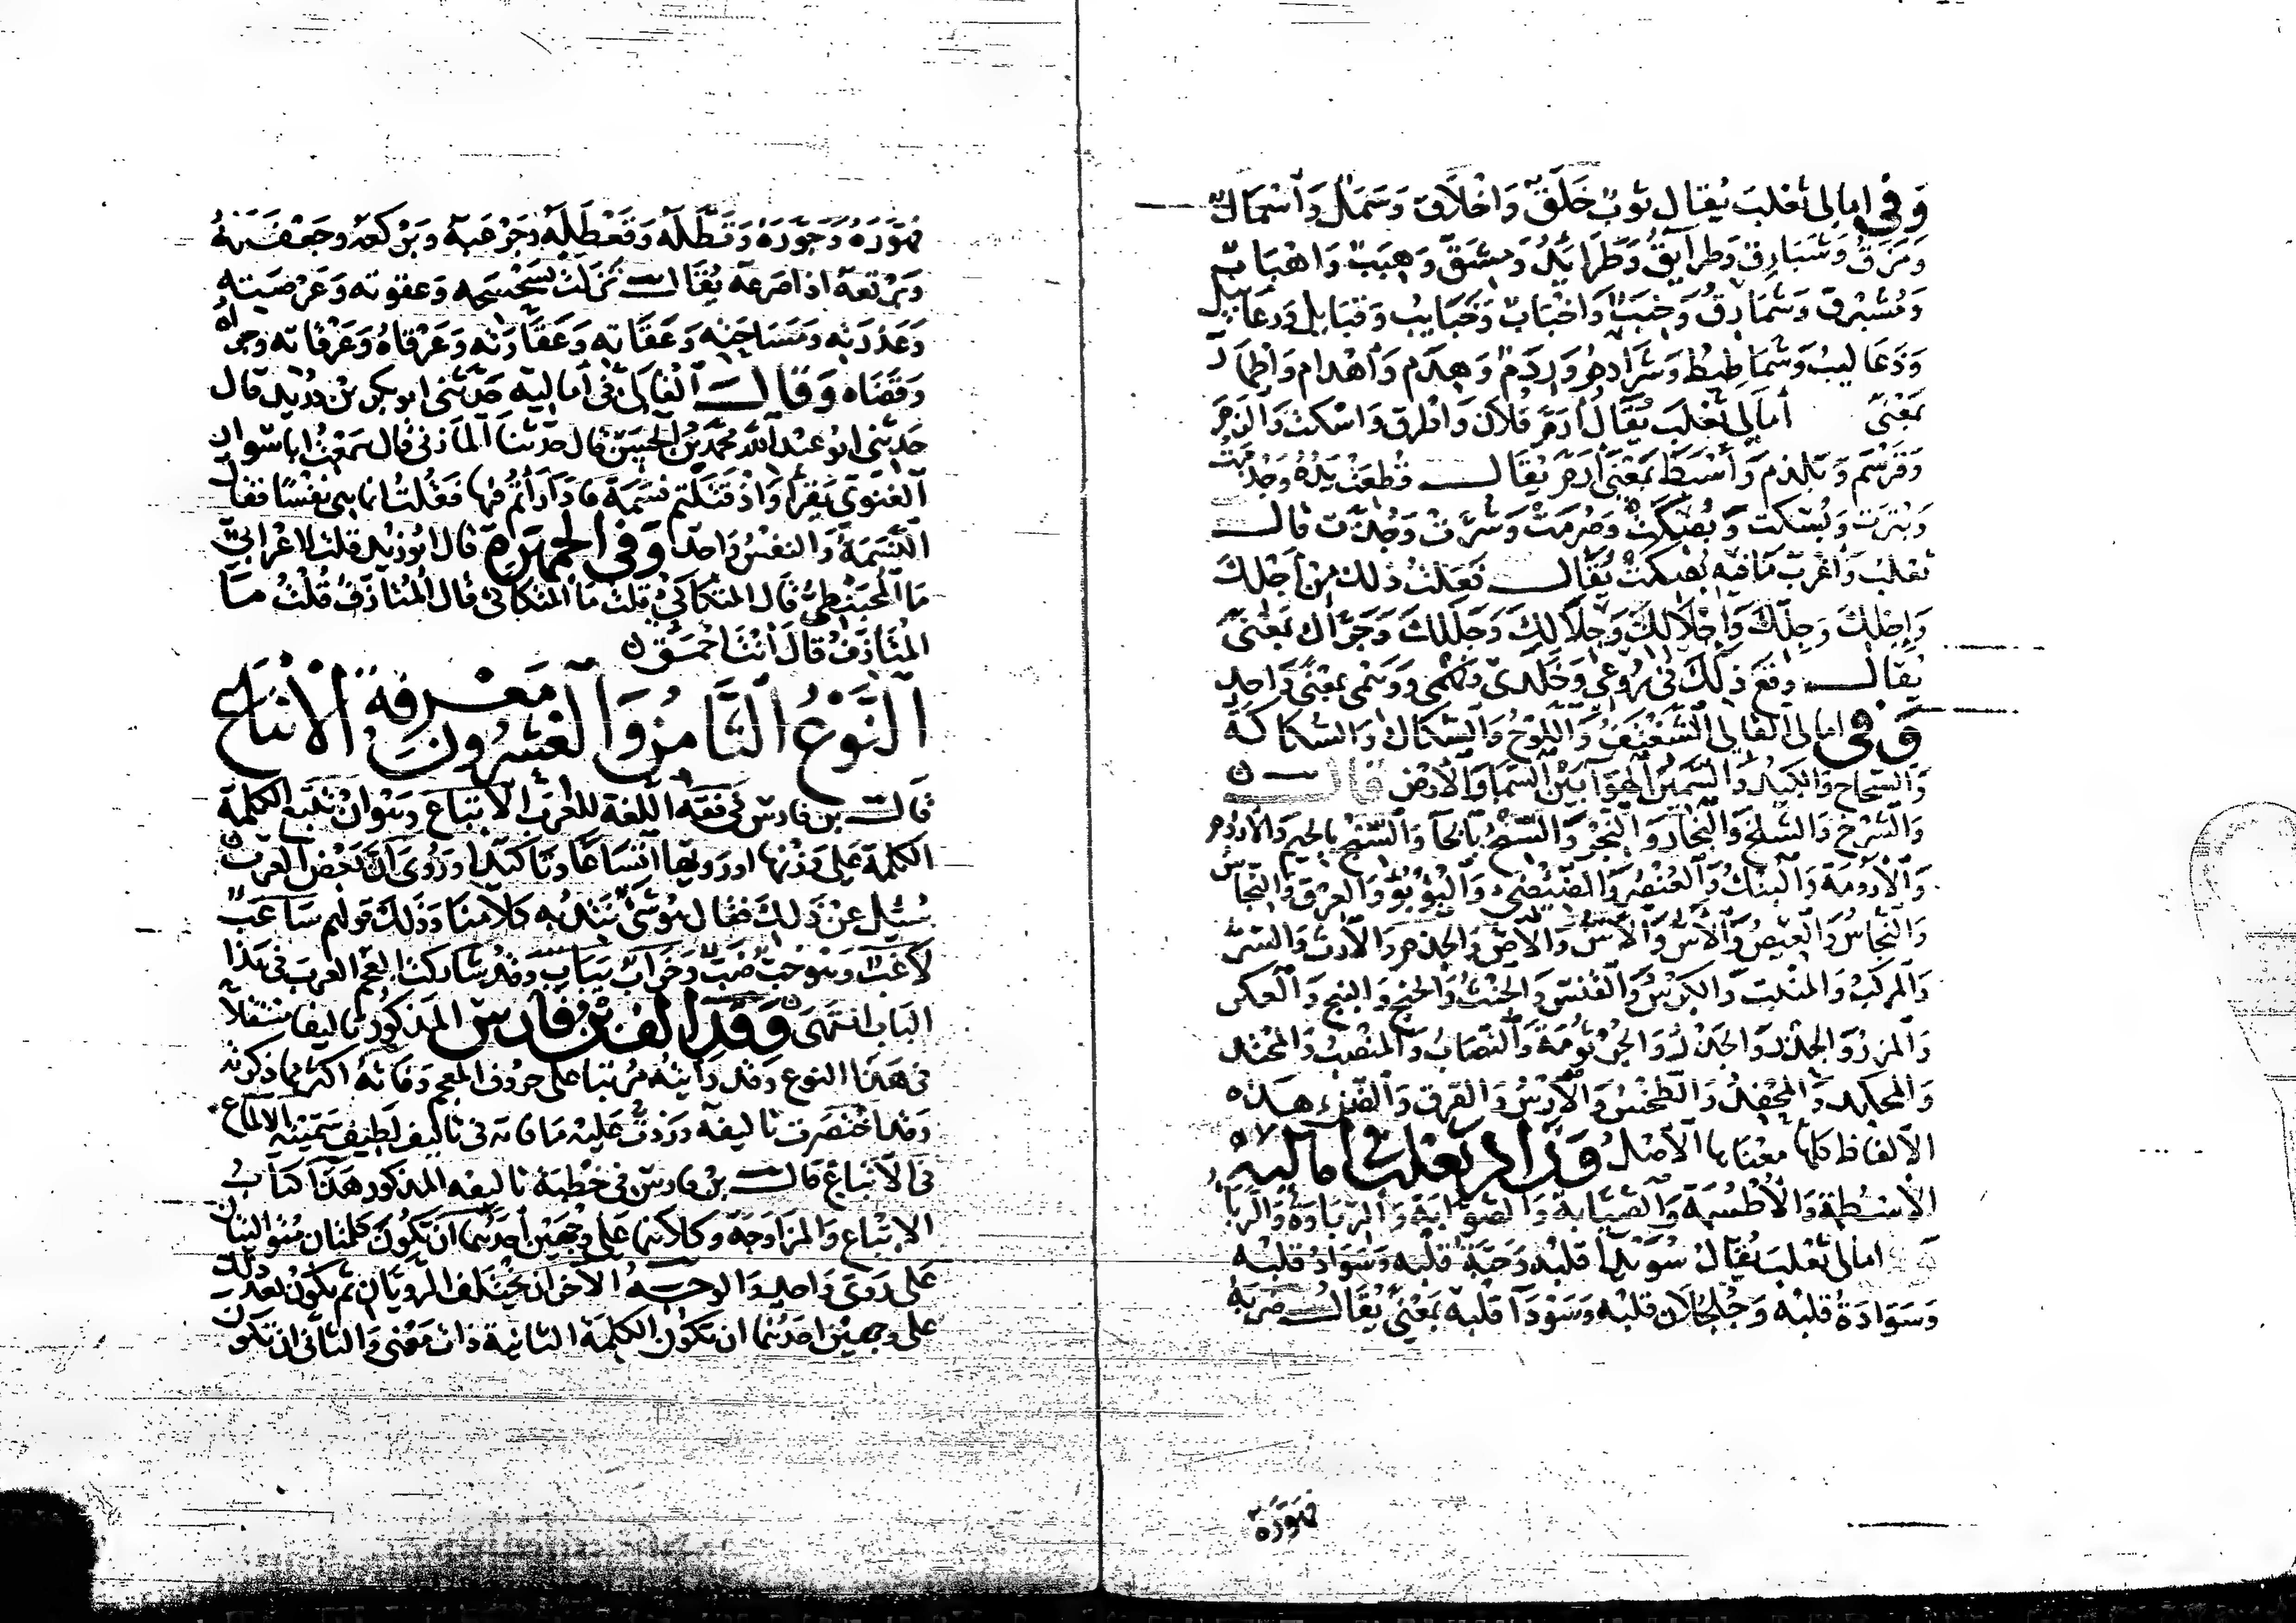 وَفي امالي ثعلب يُقال ثوبٌ خَلَقٌ وَاخْلَاق وَسَمَلٌ وَأسْمَال
وَمِزَقٌ وَشَبَارِق وَطرايقُ وَطَرَايدُ وَمشَقٌ وَهِبَبٌ وَاهْبَابٌ
وَمُشَبْرق وَشمَارقُ وَخِبَبٌ وَاخْبَابٌ وَخَبَايب وَقبَايل وَرعَابيل
وَذَعَاليبُ وَشمَاطِيط وَشرَاذمُ وَرِدَمٌ وَهِدَم وَأهدام وَأطمار
بمعْنًى أمالي ثعْلبَ يُقَالُ أرَمَّ فلان وَاطرق وَاسكت وَالزم
وَقرْسَم وَبلذم وَأسْبَطَ بمعْنى أرَمَّ يُقَال قُطِعَتْ يَدُهُ وَجُذمتْ
وَبُترَت وَبُتكت وَبُضكَتْ وَصُرمَتْ وَتُرَّتْ وَجُذَّت قال
ثعلب وَأغرَب مَا فيه بُضكتْ يُقَال فَعَلْتُ ذلك مِن أجْلكَ
وَإجْلكَ وَجلّكَ وَإجْلَالكَ وَجَلَالكَ وَجَلَلكَ وَجَرَّاك بمعْنًى
يُقال وقعَ ذلكَ في رُوعي وَخَلَدى وَوهْمى بمعْنًى وَاحدٍ
وَفي امالى القالى النَّفْنَفُ وَاللُّوحُ وَالسُّكَاك وَالسُّكاكَة
وَالسَّحَاح وَالكبَدُ وَالسَّمْهَى الهوَآ بين السَّمَا وَالأرض قال
وَالشّرْخُ وَالسِّنْخ وَالنِّجَار وَالنَّجْر وَالسِّنْخُ بالخآ وَالسِّنْجُ بالجيم وَالاروم
وَالأرُومَة وَالبُنكُ وَالعُنصُر وَالضِّئضِئ وَالبُؤْبُؤ وَالعِرْق وَالنِّحَاسُ
وَالنُّحَاسُ وَالعِيصُ وَالأسُّ وَالإسُّ وَالأصُّ وَالجِذم وَالإرث وَالسِّرُّ
وَالمركّبُ وَالمنبت وَالكِرْسُ وَالقَنْسُ وَالجِنْثُ وَالحِنج وَالبنج وَالعكر
وَالمزرُ وَالجَذْر وَالجِذْر وَالجُرْثُومَة وَالنّصَابُ وَالمنْصِب وَالمَحْتد
وَالمحكد وَالمَحْفِدُ وَالطِّخسُ وَالإرْسُ وَالقرق وَالضّنْء هَذه
الالفاظ كلها معْنَاها الأصْل وَزَادَ ثعْلب في اماليه
الأسْطمّة وَالأطْسُمّة وَالصُّيَّابَة وَالصُّوَّابَة وَالرَّبَاوَة وَالرَّبَا
وفي امالى ثعلبَ يُقالُ سُوَيْدا قلبه وَحَبَّة قلْبِه وَسَوَادُ قلبه
وَسَوَادَةُ قلبه وَجُلْجُلَان قلبه وَسَوْدَآ قلبه بمَعْنًى يُقَال ضربَه
فهَوّرَه
فهَوّرَهُ وَجَوَّرَهُ وَقطّلَه وَقَعْطَلَهُ وَجَرْعَبَهُ وَبرْكعَهُ وجَعْفَلَهُ
وَبَرْتعهُ اذا صَرعَه يُقَال نَزلتْ بسَحْسَحه وَعقوته وَعَرْصَته
وَعَذرَته وَسَاحَته وَعَقَاته وَعَقَارته وَعَرْقاهُ وَعَرْقاته وحراه
وَقصَاه وَقَال القالى في أماليه حَدّثنى ابو بكر بْن دُريد قال
حَدّثني ابو عبد الله محمّد بن الحُسَين قال حَدّثنَا المازنى قال سَمعْتُ ابا سَوار
الغنوى يقرَأ وَاذ قتَلتم نسَمَة فادَّارَأتُم فيها فَقُلتُ انما هي نفْسًا فقال
النّسَمَة وَالنفس وَاحد وَفي الجمهرة قال ابو زيد قلتُ لاعْرَابيّ
مَا المُحْبَنْطِئ قال المتكأكئ قلتُ مَا المتكأكئ قال المُتآزف قُلْتُ مَا
المُتَآزف قال أنتَ احْمَق
النَّوْعُ الثَّامِنُ وَالعِشْرُونَ مَعْرفة الإتْبَاع
قال بن فارس في فقه اللّغة للعَرَب الإتبَاع وَهُوَ ان تُتْبع الكلمة
الكلمة عَلى وَزْنها اورَويّها اتسَاعًا وَتأكيدا وَرُوى أنَّ بعْضَ العرَب
سُئل عَنْ ذلك فقال هُوَ شَئ نَتِدُ به كلَامنَا وَذلك قولهم سَاغب
لَاغب وَهُو خبٌّ ضَبّ وَخَرَاب يَبَاب وَقد شاركت العجم العربَ في هذا
البَاب انتهى وَقَد ألف بْن فارس المذكور تاليفا مُستقلا
في هَذا النوع وقد رَأيتهُ مُرتبا على حروف المعجم وَفاتهُ اكثر مما ذكره
وَقد اخْتصَرت تاليفهُ وَزدْتُ عَليْه مَا فاته في تاليف لطيف سَمّيته الالماع
في الاتبَاع قال بن فارس في خطبَة تاليفه المذكور هَذَا كتاب
الاتبَاع وَالمزَاوَجَة وَكلَاهمَا عَلى وَجْهَيْن احَدهُمَا انْ تَكُونَ كلمتان مُتوَاليتان
عَلى رَوىّ وَاحد وَالوجهُ الآخر ان يخْتلف الرّويَّان ثم يكونُ بَعْد ذلك
على وجهين احَدهُمَا ان تكُون الكلمَة الثانية ذات مَعْنى وَالثانى ان تكون